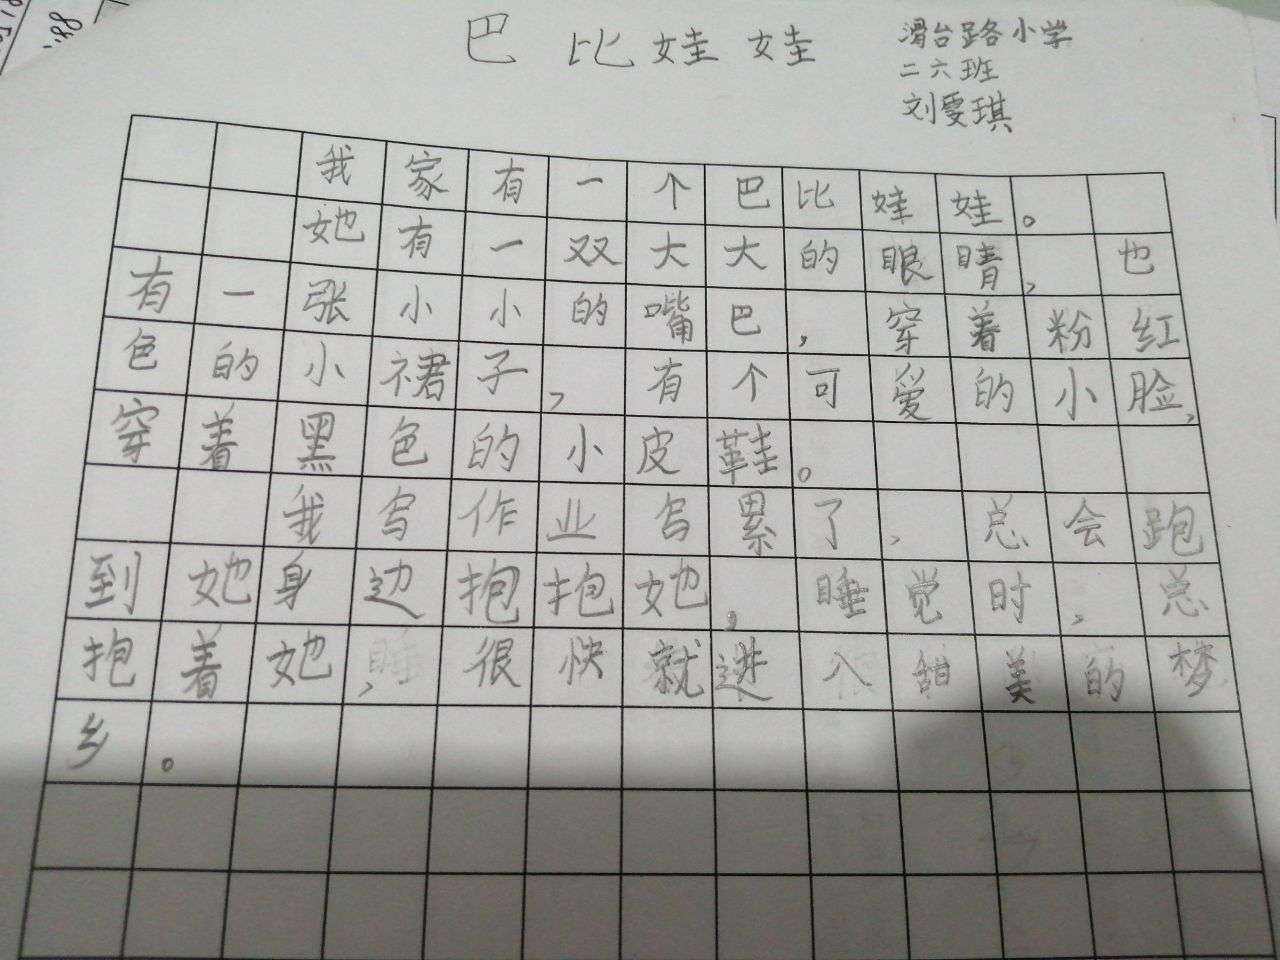 巴比娃娃
滑台路小学
二六班
刘雯琪
我家有一个巴比娃娃。
她有一双大大的眼睛，也
有一张小小的嘴巴，穿着粉红
色的小裙子，有个可爱的小脸，
穿着黑色的小皮鞋。
我写作业写累了，总会跑
到她身边抱抱她，睡觉时，总
抱着她，很快就进入甜美的梦
乡。